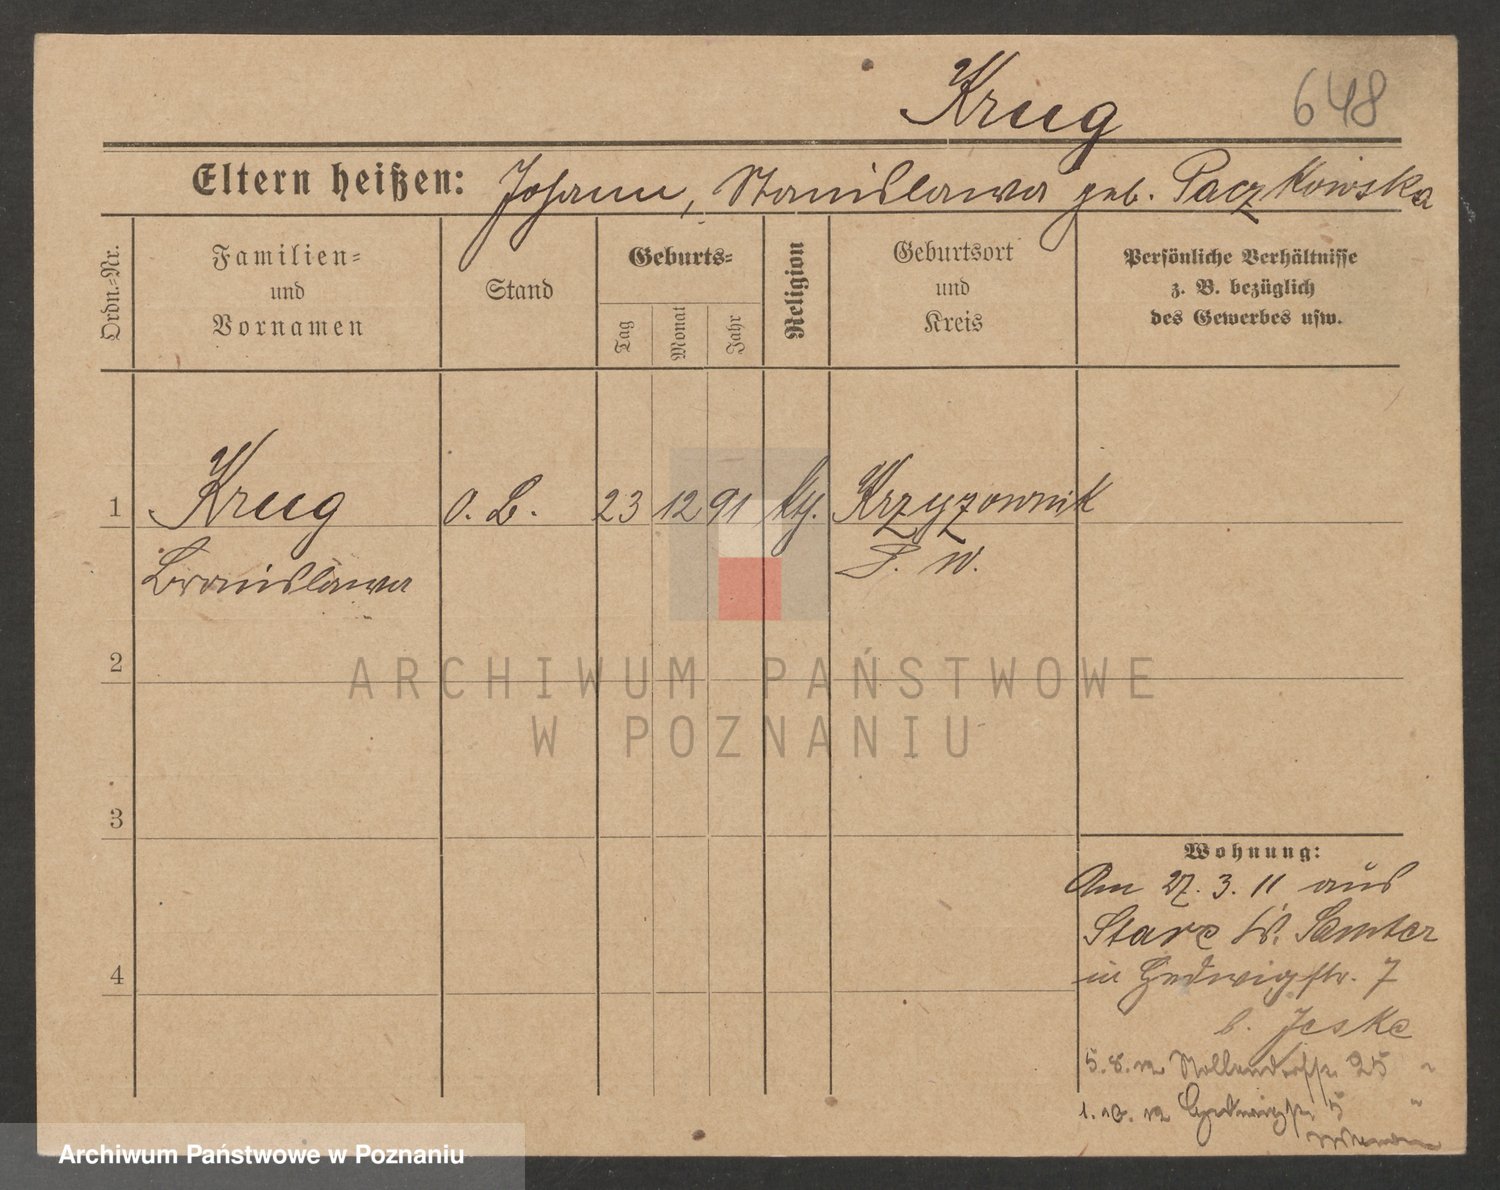 Krug 648
Eltern heißen: Johann, Stanislawa geb. Paczkowska
Ordn.-Nr.
Familien-
und
Vornamen
Stand
Geburts-
Tag
Monat
Jahr
Religion
Geburtsort
und
Kreis
Persönliche Verhältnisse
z. B. bezüglich
des Gewerbes usw.
1 Krug o. B. 23 12 91 kth. Krzyzownik
Bronislawa P. W.
2
3
4
Wohnung:
Am 27. 3. 11 aus
Stare Kr. Samter
in Hedwigstr. 7
b. Jeske
5.8.12 Nollendorfstr. 25 "
1.10.12 Hedwigstr. 5 "
ARCHIWUM PAŃSTWOWE
W POZNANIU
Archiwum Państwowe w Poznaniu